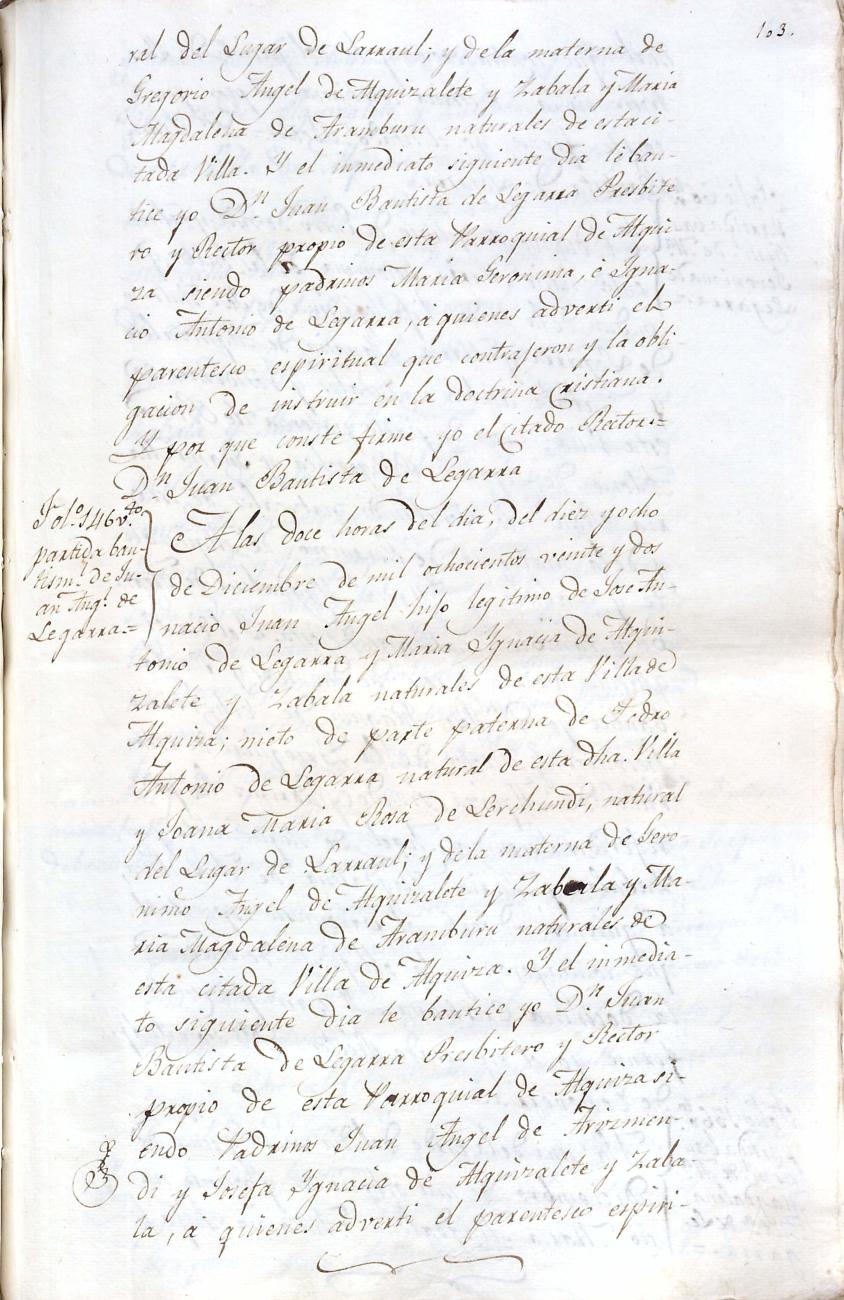 103.
ral del Lugar de Larraul; y de la materna de
Gregorio Angel de Alquizalete y Zabala y Maria
Magdalena de Aramburu naturales de esta ci-
tada Villa. Y el inmediato siguiente dia le bau-
tice yo Dn. Juan Bautista de Legarra Presbite
ro y Rector propio de esta Parroquial de Alqui
za siendo padrinos Maria Geronima, è Igna-
cio Antonio de Legarra, à quienes adverti el
parentesco espiritual que contrajeron y la obli-
gacion de instruir en la doctrina cristiana.
Y por que conste firme yo el citado Rector=
Dn. Juan Bautista de Legarra
Folo. 146 vto.
partida bau-
tisml. de Ju-
an Angl. de
Legarra=
A las doce horas del dia, del diez y ocho
de Diciembre de mil ochocientos veinte y dos
nacio Juan Angel hijo legitimo de Jose An-
tonio de Legarra y Maria Ygnacia de Alqui-
zalete y Zabala naturales de esta Villa de
Alquiza; nieto de parte paterna de Pedro
Antonio de Legarra natural de esta dha. Villa
y Joana Maria Rosa de Lerchundi, natural
del Lugar de Larraul; y de la materna de Gero-
nimo Angel de Alquizalete y Zabala y Ma-
ria Magdalena de Aramburu naturales de
esta citada Villa de Alquiza. Y el inmedia-
to siguiente dia le bautice yo Dn. Juan
Bautista de Legarra Presbitero y Rector
propio de esta Parroquial de Alquiza si-
endo Padrinos Juan Angel de Arizmen-
di y Josefa Ygnacia de Alquizalete y Zaba
la, à quienes adverti el parentesco espiri-